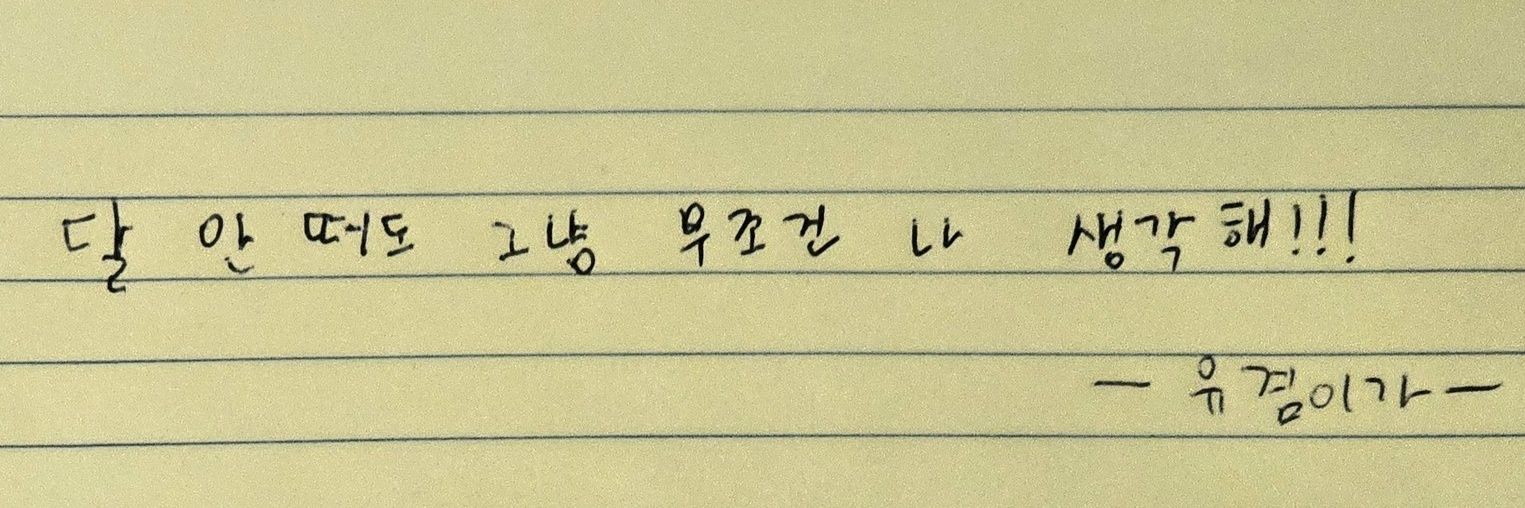 달 안 떠도 그냥 무조건 내 생각 해!!!
— 유겸이가 —